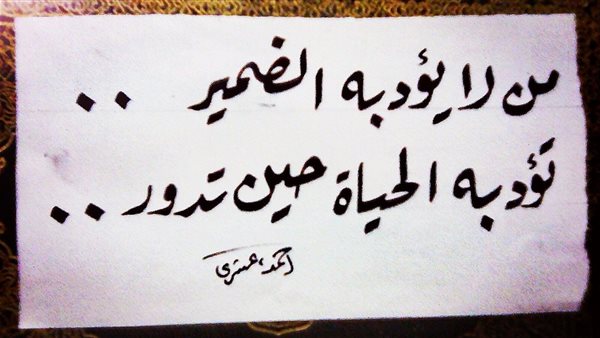 من لا يؤدبه الضمير ..
تؤدبه الحياة حين تدور ..
أحمد عسري